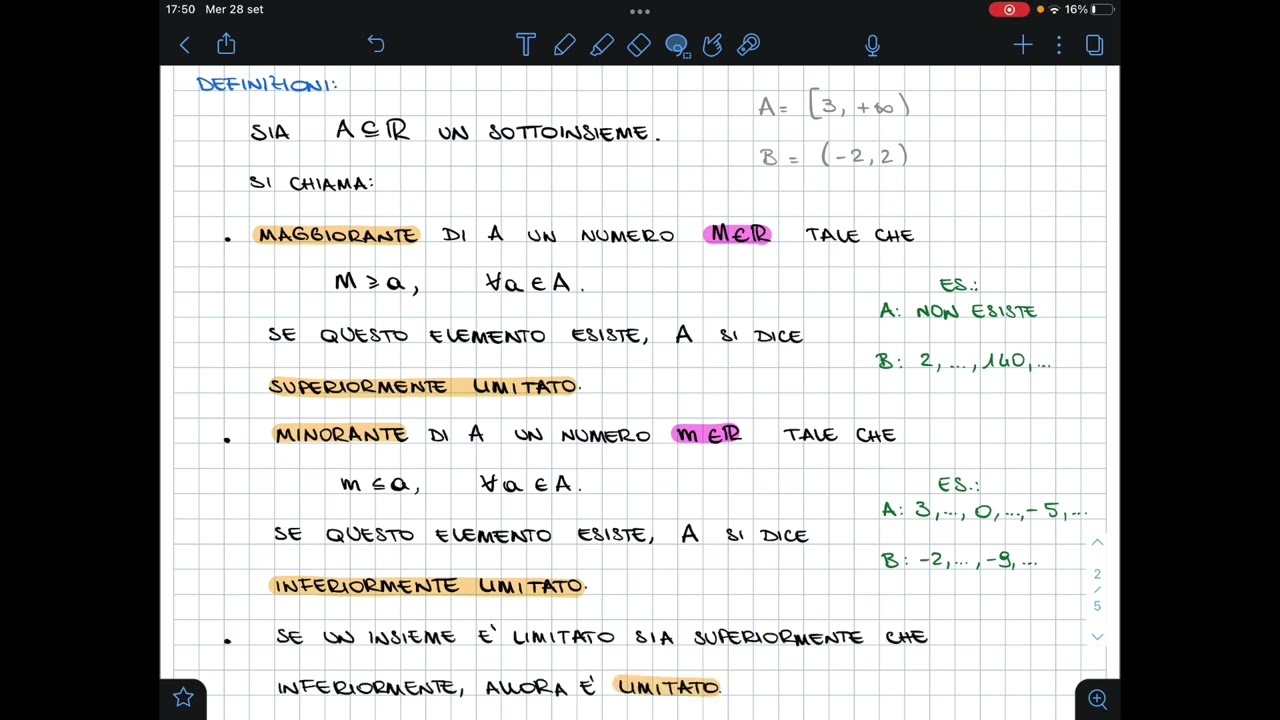 17:50 Mer 28 set
16%
DEFINIZIONI:
A = [3, +∞)
SIA A ⊆ ℝ UN SOTTOINSIEME.
B = (-2, 2)
SI CHIAMA:
• MAGGIORANTE DI A UN NUMERO M∈ℝ TALE CHE
M ⩾ a, ∀a ∈ A.
ES.:
A: NON ESISTE
SE QUESTO ELEMENTO ESISTE, A SI DICE
B: 2, ..., 140, ...
SUPERIORMENTE LIMITATO.
• MINORANTE DI A UN NUMERO m ∈ℝ TALE CHE
m ≤ a, ∀a ∈ A.
ES.:
A: 3, ..., 0, ..., -5, ...
SE QUESTO ELEMENTO ESISTE, A SI DICE
B: -2, ..., -9, ...
INFERIORMENTE LIMITATO.
2
/
5
• SE UN INSIEME E' LIMITATO SIA SUPERIORMENTE CHE
INFERIORMENTE, ALLORA E' LIMITATO.